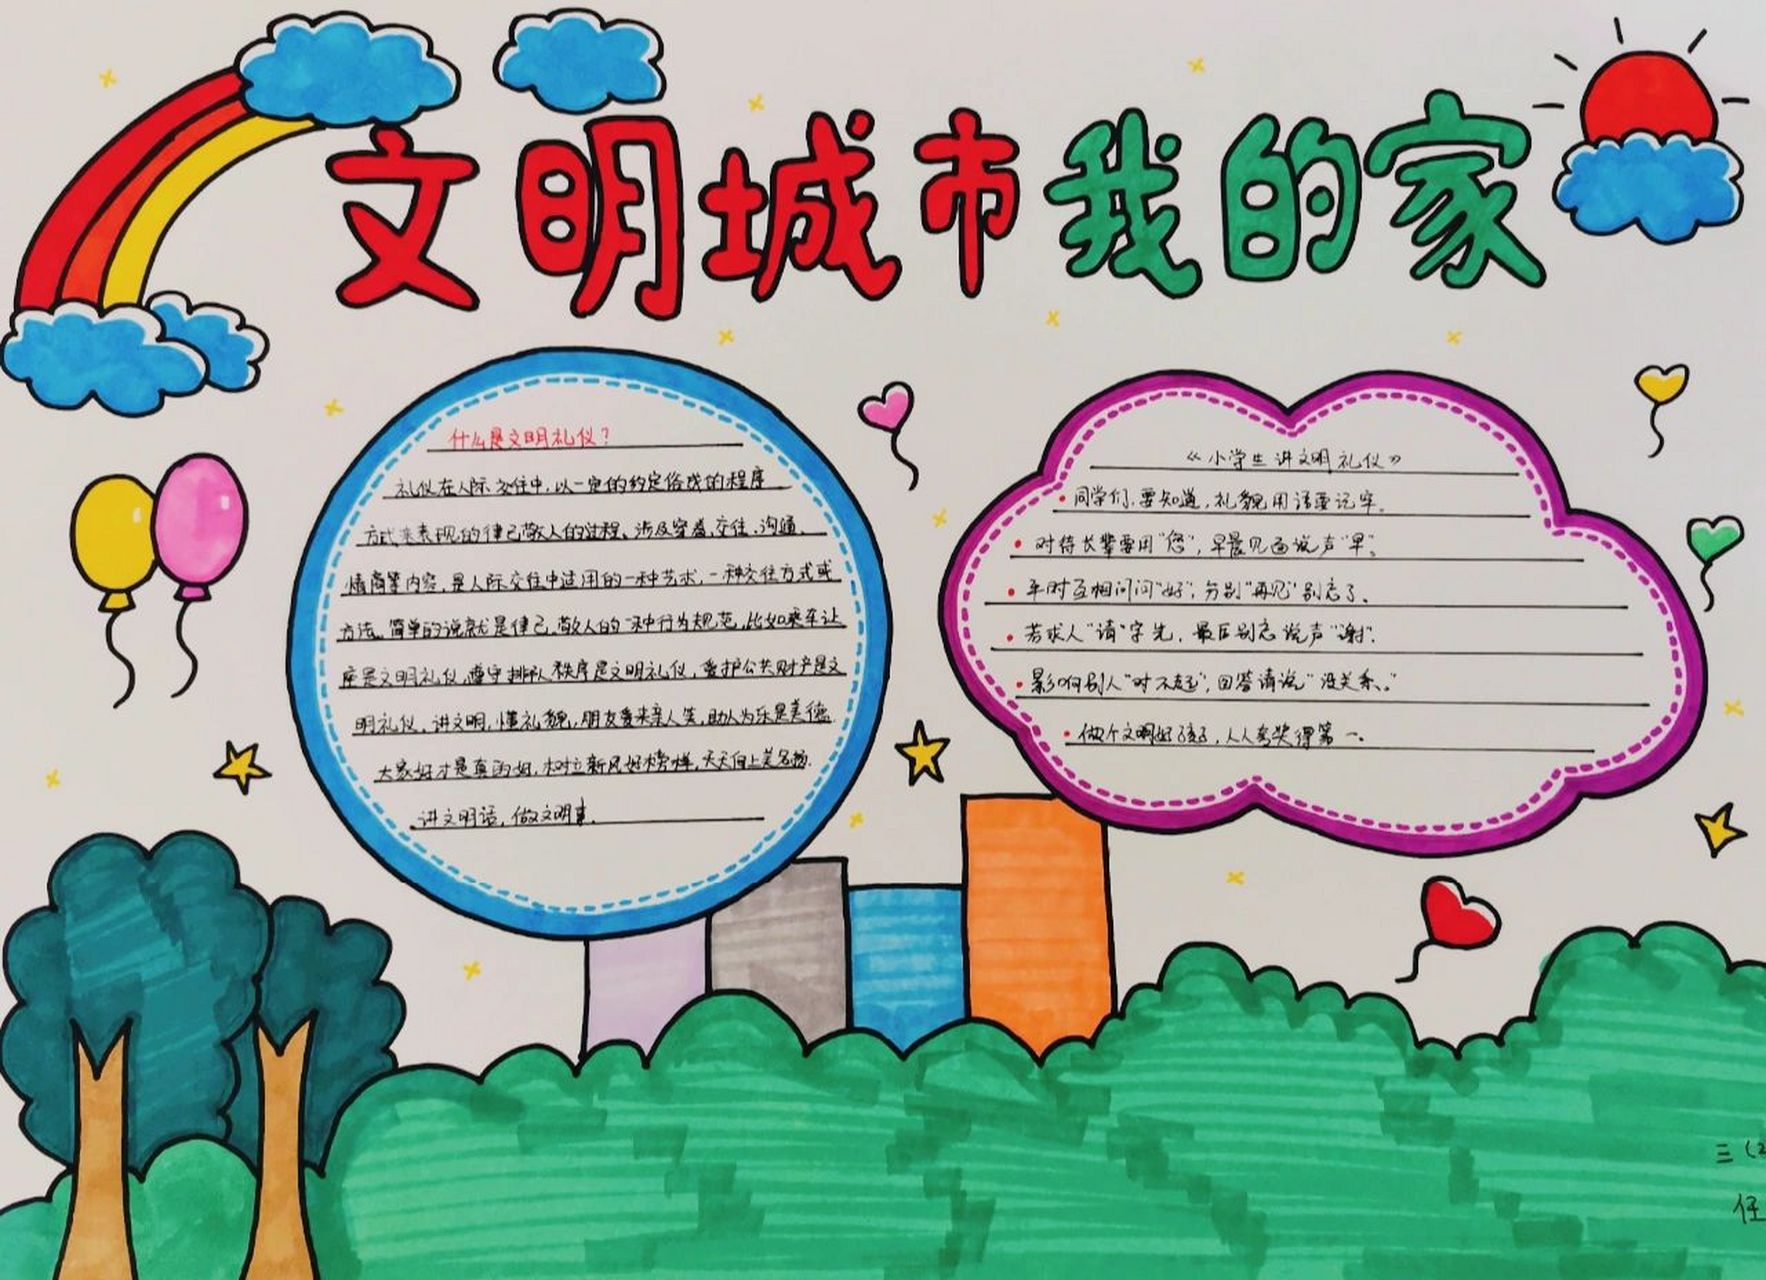 文明城市我的家
什么是文明礼仪?
礼仪在人际交往中,以一定的约定俗成的程序
方式来表现的律己敬人的过程、涉及穿着,交往、沟通、
情商等内容,是人际交往中适用的一种艺术,一种交往方式或
方法。简单的说就是律己、敬人的一种行为规范,比如乘车让
座是文明礼仪,遵守排队秩序是文明礼仪,爱护公共财产是文
明礼仪、讲文明,懂礼貌,朋友爱来亲人笑,助人为乐是美德
大家好才是真的好,树立新风好榜样,天天向上美名扬.
讲文明话,做文明事.
《小学生讲文明礼仪》
·同学们,要知道,礼貌用语要记牢。
·对待长辈要用“您”,早晨见面说声“早”。
·平时互相问问“好”,分别“再见”别忘了、
·若求人“请”字先,最后别忘说声“谢”.
·影响别人“对不起”,回答请说“没关系。”
·做个文明好孩子,人人夸奖得第一。
三(2
任